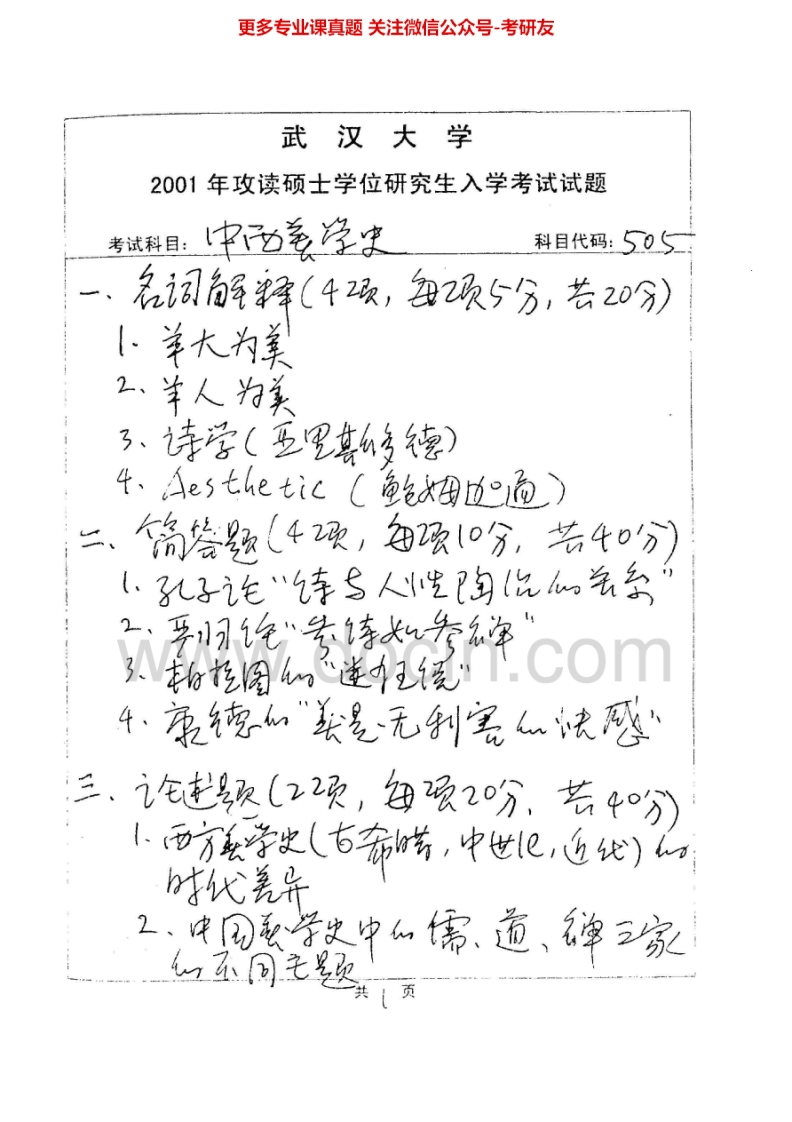 更多专业课真题 关注微信公众号-考研友
武汉大学
2001 年攻读硕士学位研究生入学考试试题
考试科目：中西美学史 科目代码：505
一、名词解释(4项，每项5分，共20分)
1. 羊大为美
2. 羊人为美
3. 诗学(亚里斯多德)
4. Aesthetic (鲍姆加通)
二、简答题(4项，每项10分，共40分)
1. 孔子论“诗与人性陶冶的关系”
2. 严羽论“学诗如参禅”
www.docin.com
3. 柏拉图的“迷狂说”
4. 康德的“美是无利害的快感”
三、论述题(2项，每项20分，共40分)
1. 西方美学史(古希腊，中世纪，近代)的
时代差异
2、中国美学史中的儒、道、禅三家
的不同主题
共 1 页